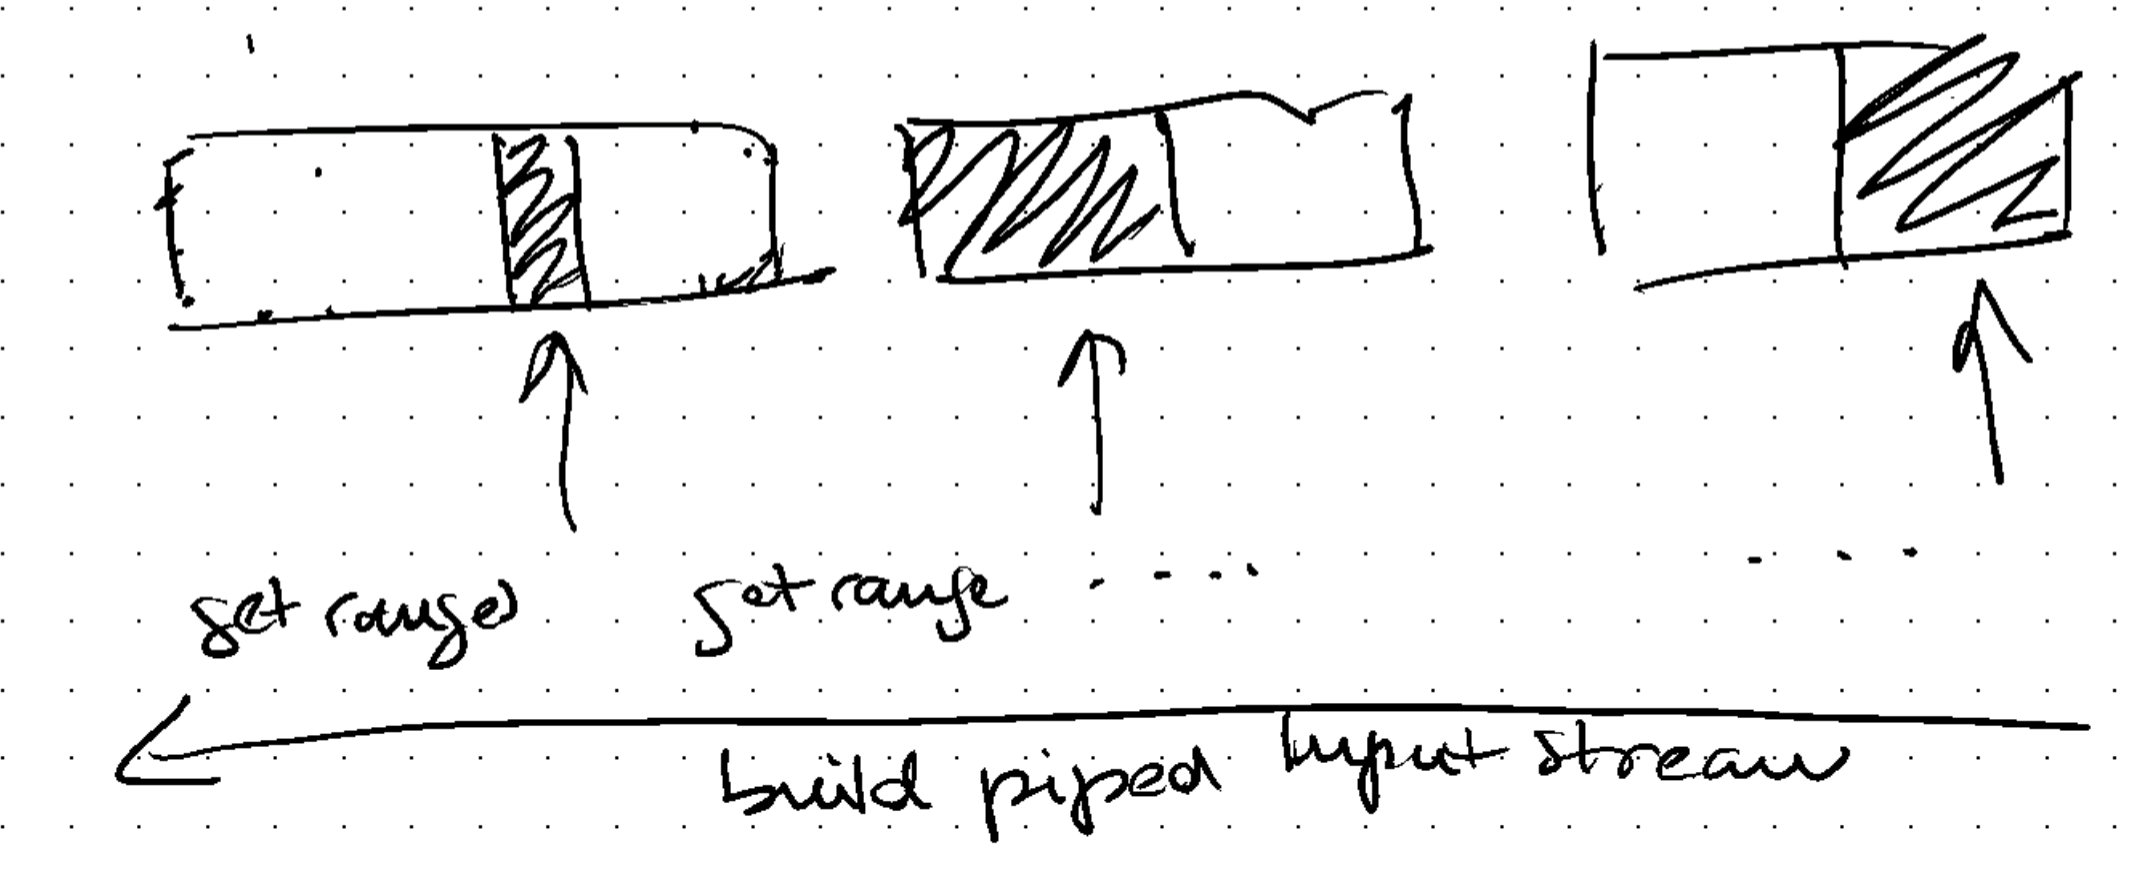 get range get range ....  ...
build piped Input stream